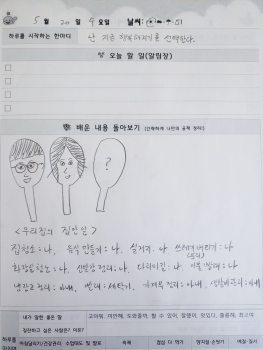 5 월 20 일 요일 날씨:
하루를 시작하는 한마디 난 지금 행복해지기를 선택한다.
오늘 할 일(알림장)
배운 내용 돌아보기 (간략하게 나만의 공책 정리)
?
<우리집의 집안일>
집청소: 나. 음식 만들기: 나. 설거지: 나. 쓰레기 버리기: 나
화장실청소: 나. 신발장 정리: 나. 다리미질: 나. 이불빨래: 나.
냉장고 정리: 아내. 빨래: 세탁기. 아내.
내가 잘한 좋은 말 고마워, 미안해, 도와줄까, 할 수 있어, 잘했어, 멋있다, 훌륭해, 최고야
칭찬하고 싶은 사람은? 이유?
하루를